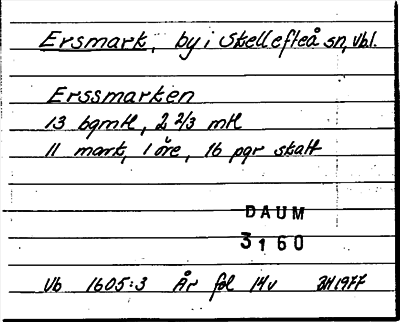 Ersmark, by i Skellefteå sn, Vb.l.
Erssmarken
13 bgmtl, 2 2/3 mtl
11 mark, 1 öre, 16 pgr skatt
DAUM
3160
Vb 1605:3 År fol 14v 1977